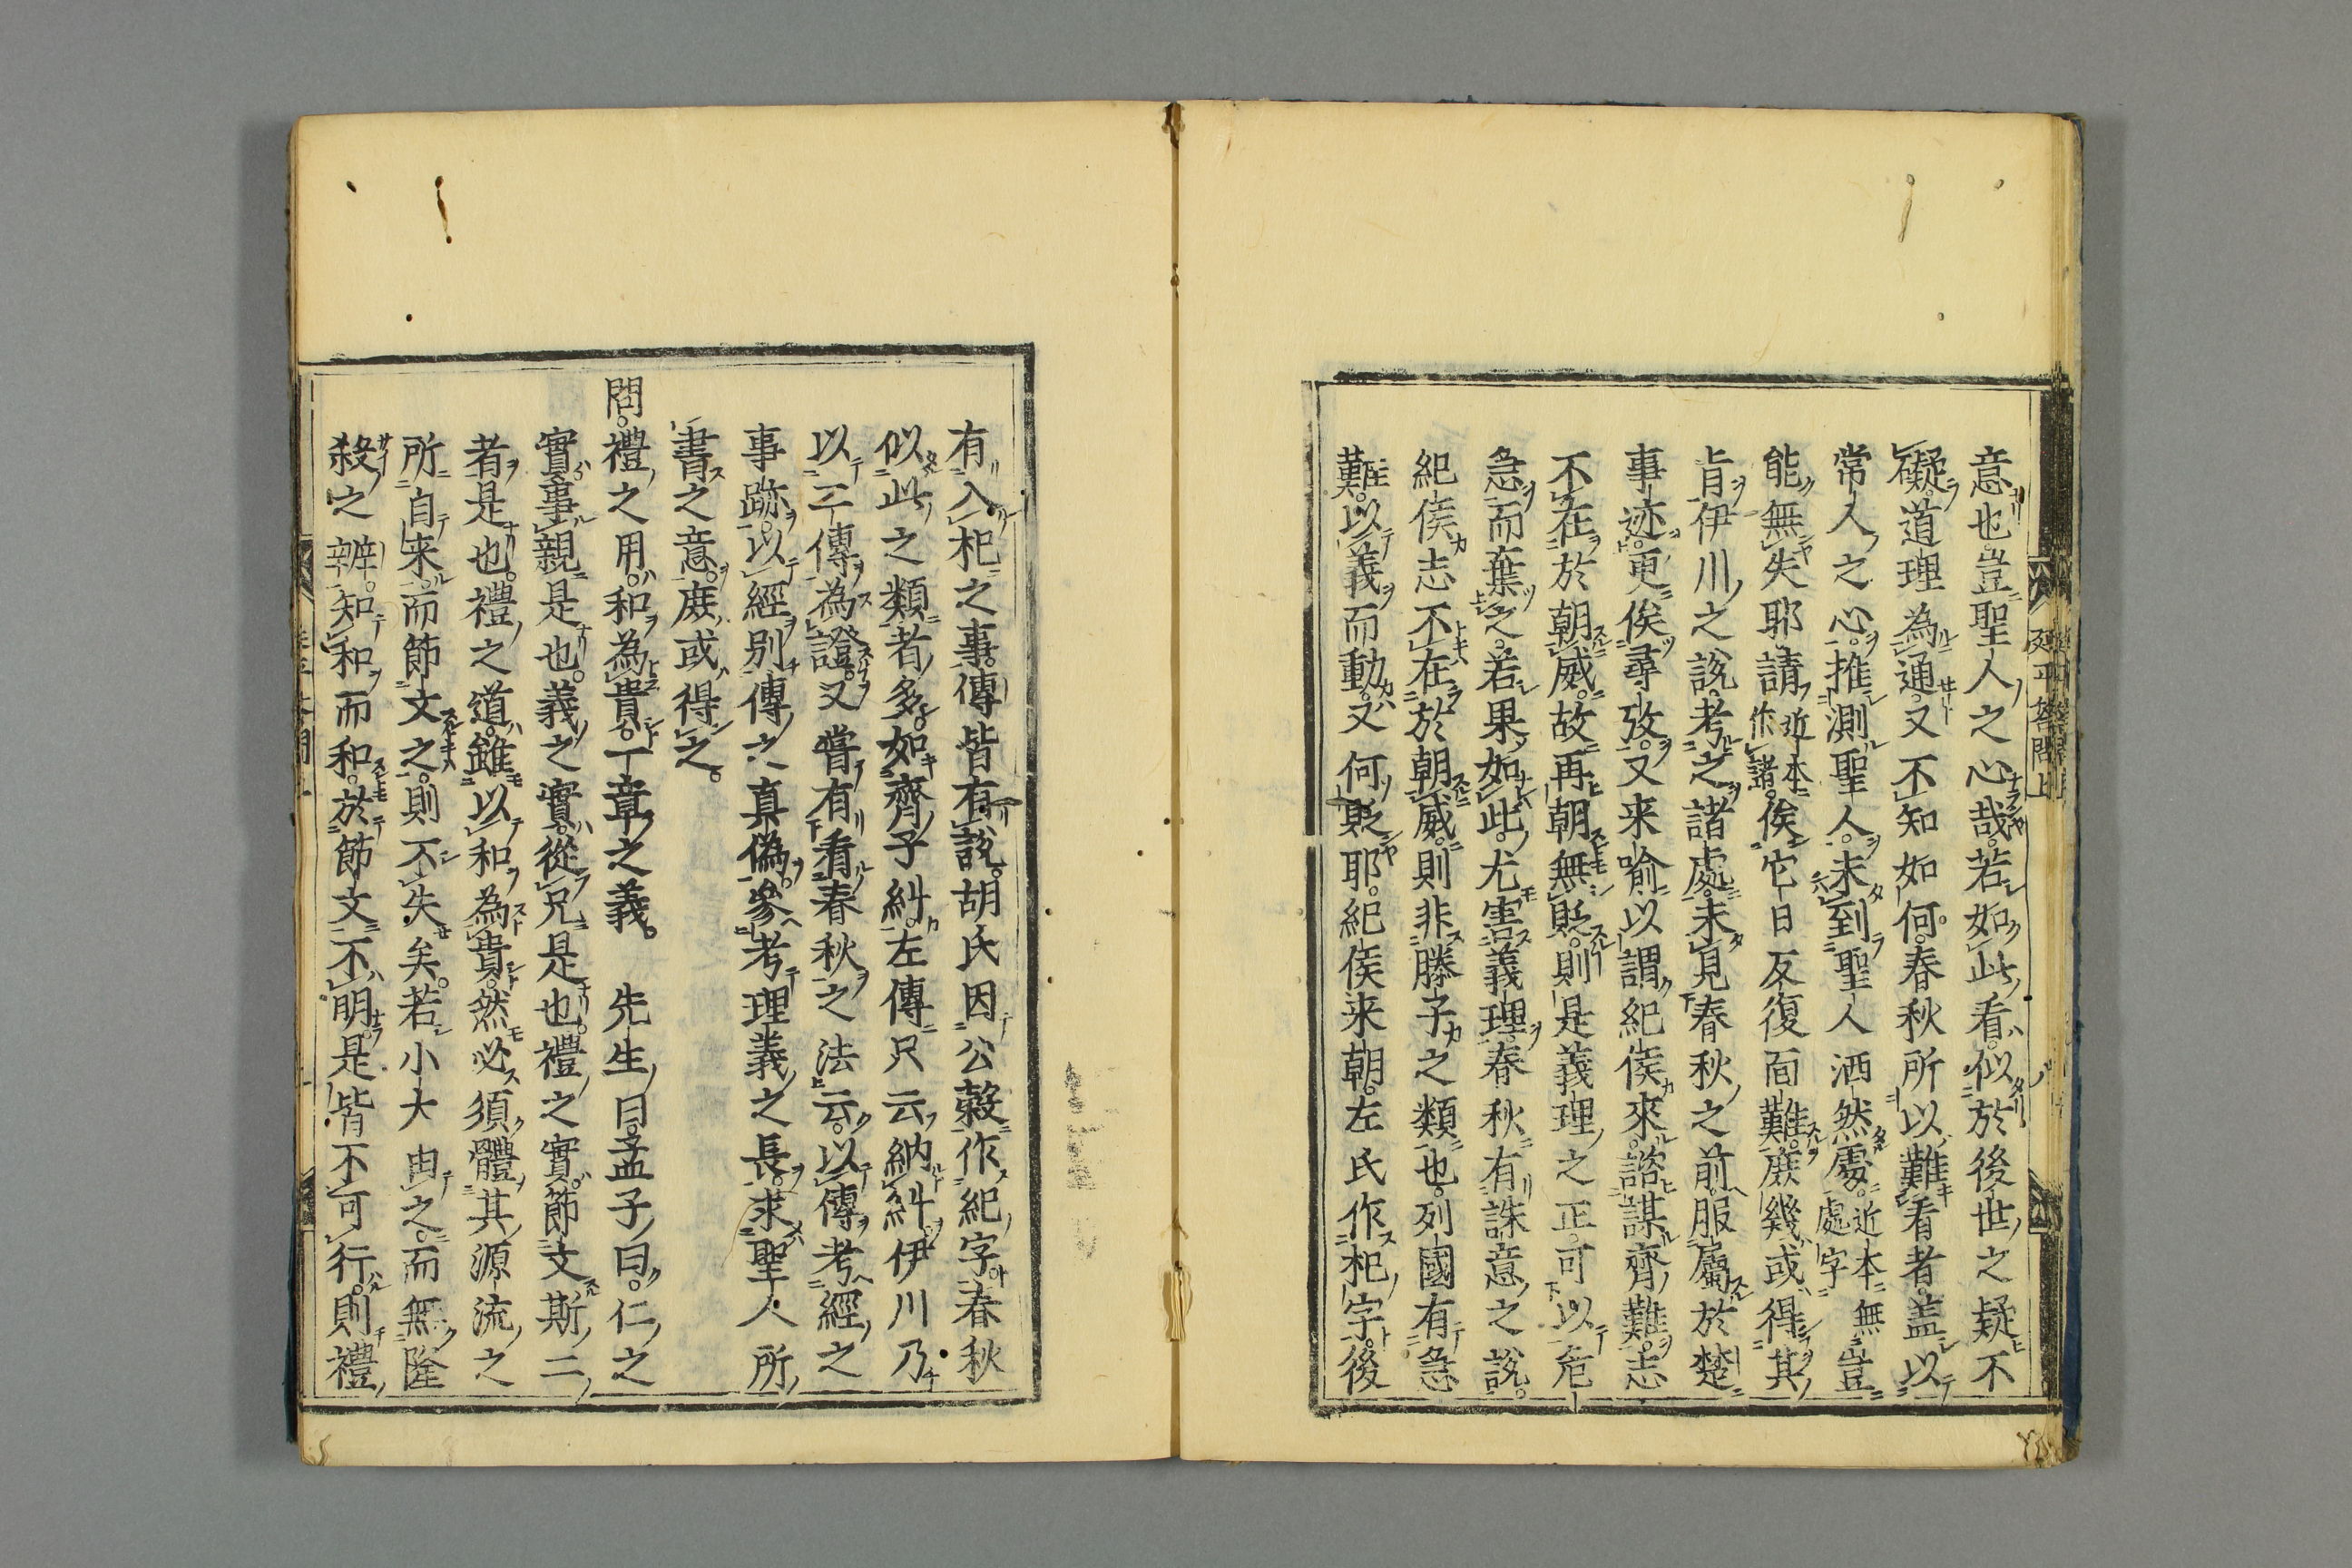 意也豈聖人之心哉若如此看似於後世之疑不
礙道理為通又不知如何春秋所以難看者盖以
常人之心推測聖人未到聖人洒然處近本無處字豈
能無失耶請近本作諸俟它日反復面難庶幾或得其
肯伊川之說考之諸處未見春秋之前服屬於楚
事迹更俟尋攷又来喻以謂紀侯來諮謀齊難志
不在於朝威故再朝無貶則是義理之正可以危
急而棄之若果如此尤害義理春秋有誅意之說
紀侯志不在於朝威則非滕子之類也列國有急
難以義而動又何貶耶紀侯来朝左氏作杞字後
有入杞之事傳皆有說胡氏因公穀作紀字春秋
似此之類者多如齊子糾左傳只云納糾伊川乃
以二傳為證又嘗有看春秋之法云以傳考經之
事跡以經別傳之真偽參考理義之長求聖人所
書之意庶或得之
問禮之用和為貴一章之義 先生曰孟子曰仁之
實事親是也義之實從兄是也禮之實節文斯二
者是也禮之道雖以和為貴然必須體其源流之
所自来而節文之則不失矣若小大由之而無隆
殺之辨知和而和於節文不明是皆不可行則禮
延平答問上